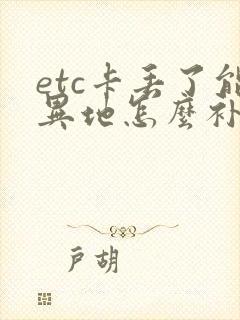 etc卡丢了能
異地怎麽补
户胡